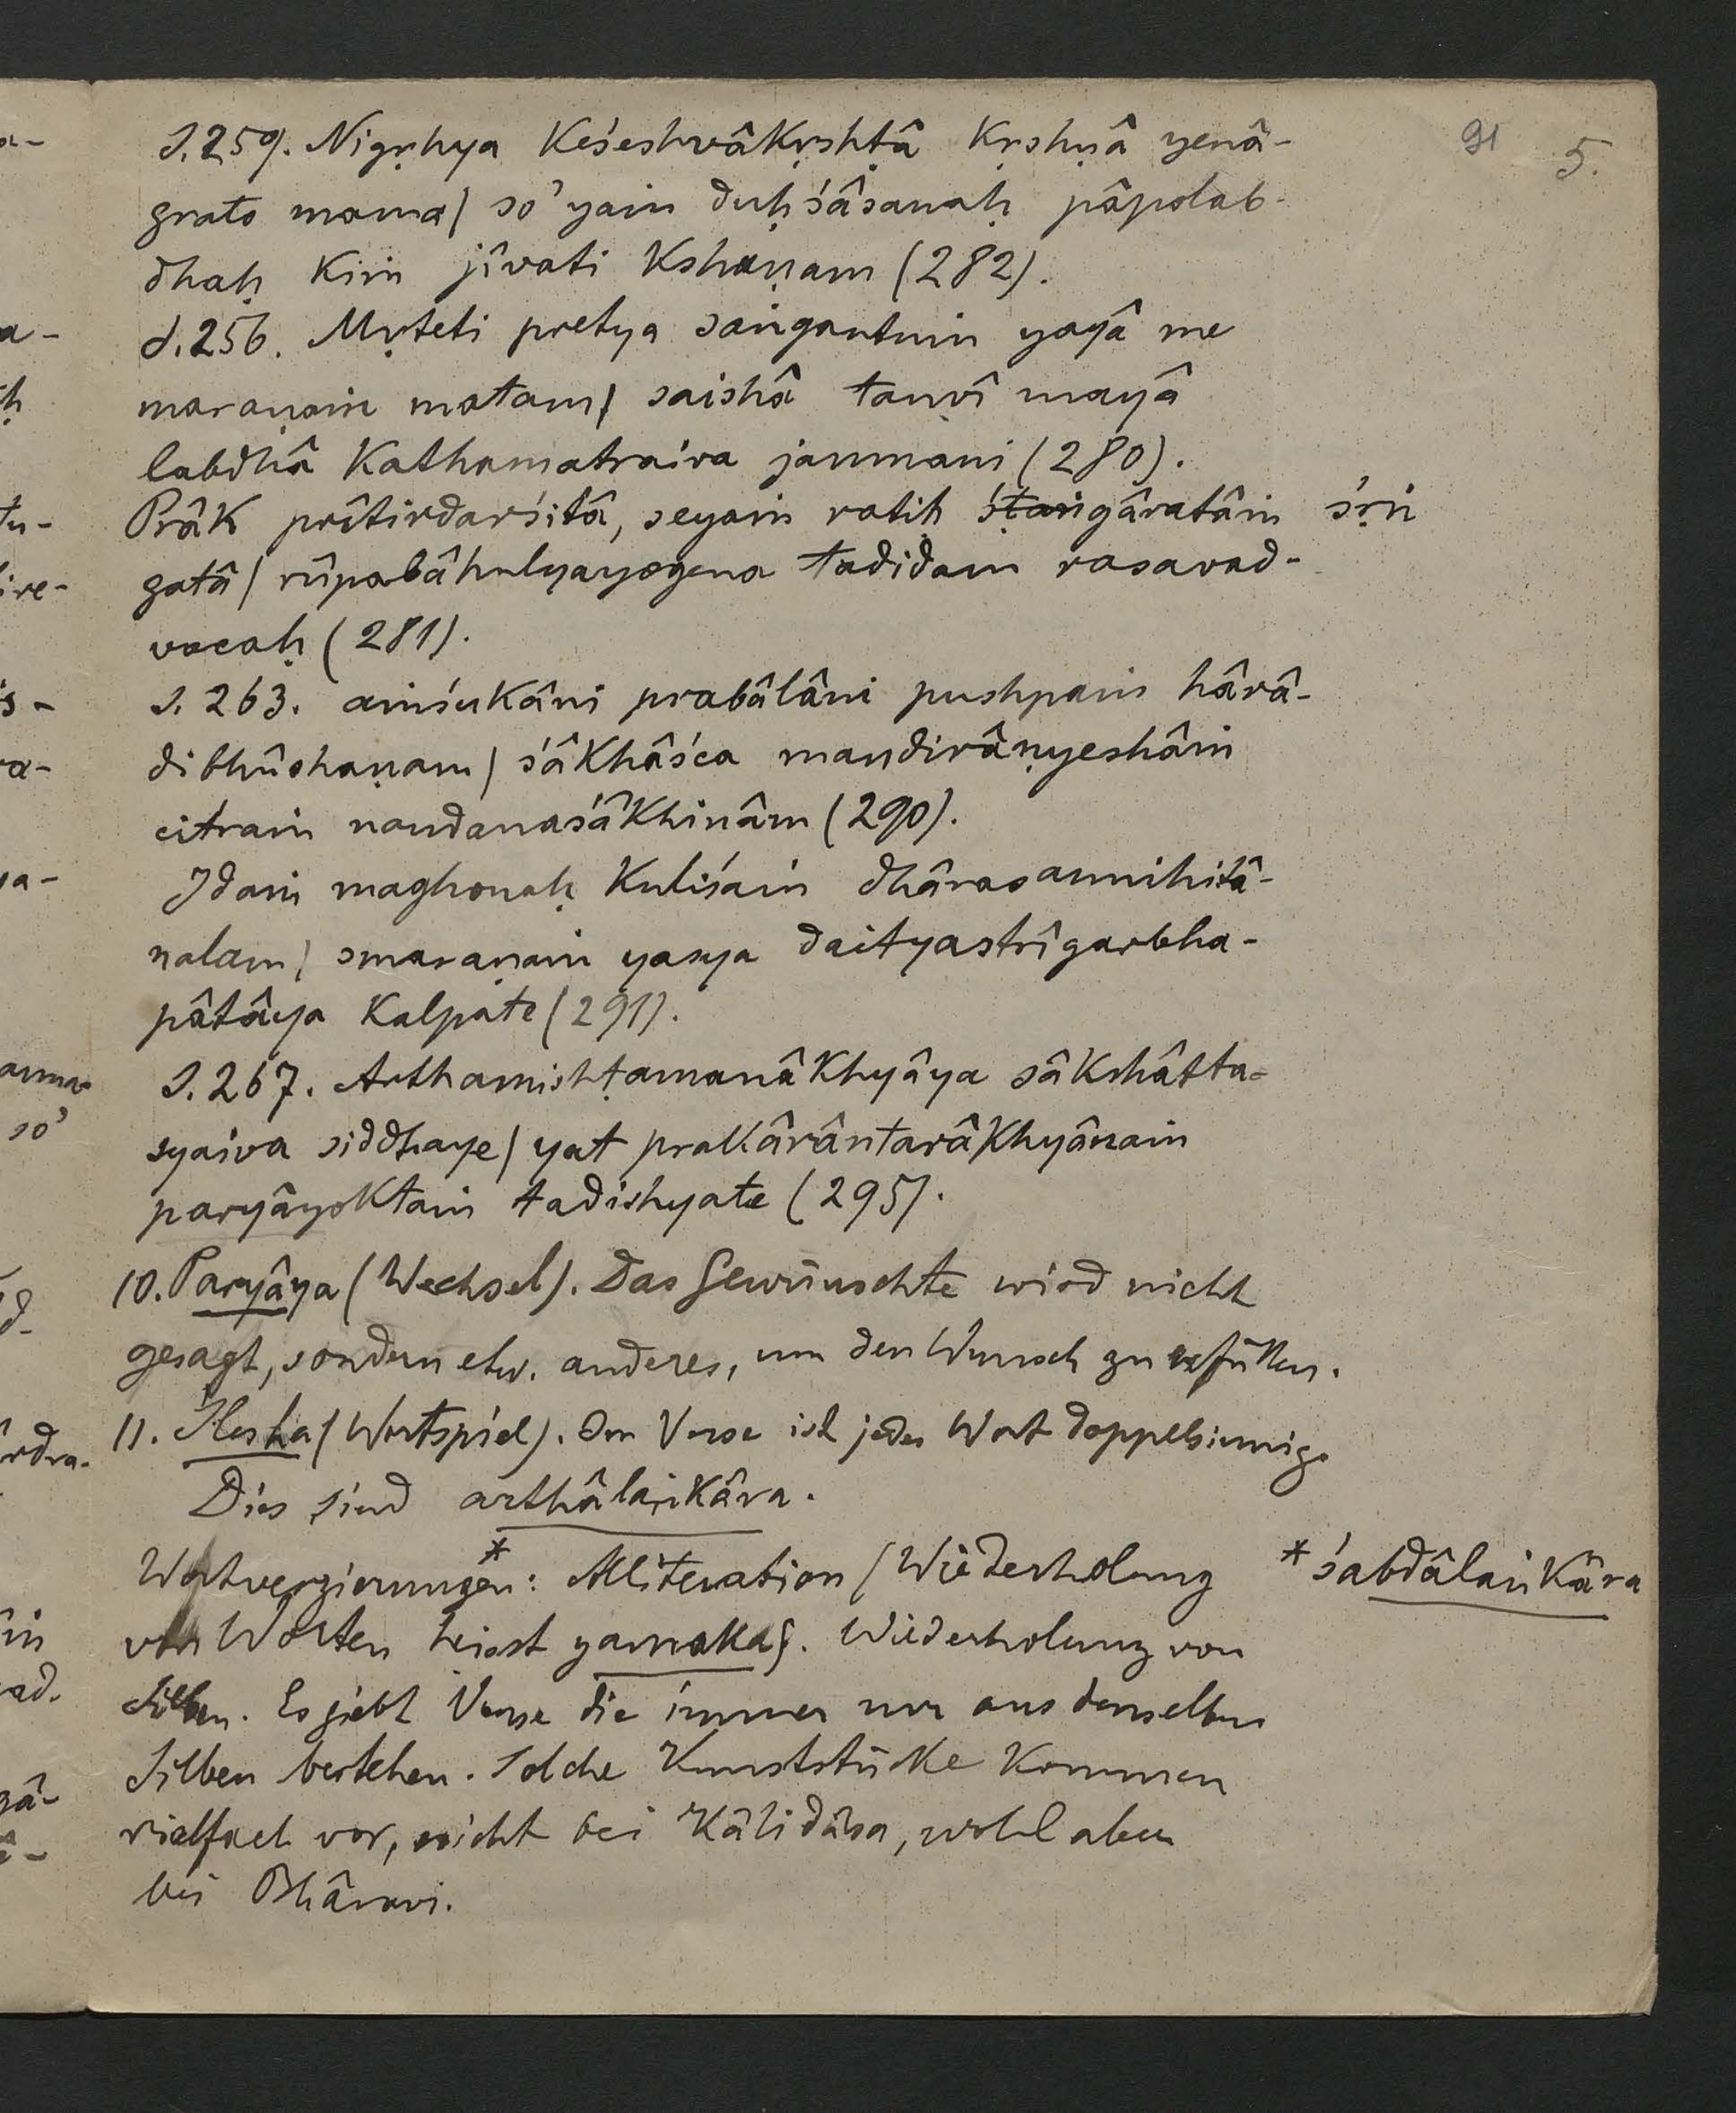 91 5.
S. 259. Nigṛhya Keśeshvâkṛshṭâ Kṛshṇâ yenâ-
grato mama/ so'yaṁ duḥśâsanaḥ pâpolab-
dhaḥ Kiṁ jîvati Kshaṇam (282).
S. 256. Mṛteti pretya saṅgantuṁ yayâ me
maraṇaṁ matam/ saishâ tanvî mayâ
labdhâ Kathamatraiva janmani (280).
Prâk prîtirdarśitâ, seyaṁ ratiḥ śṭaṅgâratâṁ śṛṅ
gatâ/ rûpabâhulyayogena tadidam rasavad-
vacaḥ (281).
S. 263. aṁśukâni prabâlâni pushpaṁ hârâ-
dibhûshaṇam/ śâkhâśca mandirâṇyeshâṁ
citraṁ nandanaśâkhinâm (290).
Idaṁ maghonaḥ Kuliśaṁ dhârasannihitâ-
nalam/ smaraṇaṁ yasya daityastrîgarbha-
pâtâya Kalpate (291).
S. 267. Arthamishṭamanâkhyâya sâkshâtta-
syaiva siddhaye/ yat prakârântarâkhyânaṁ
paryâyoktaṁ tadishyate (295).
10. Paryâya (Wechsel). Das Gewünschte wird nicht
gesagt, sondern etw. anderes, um den Wunsch zu erfüllen.
11. Ślesha (Wortspiel). Im Verse ist jedes Wort doppelsinnig.
Dies sind arthâlaṅkâra.
Wortverzierungen*: Alliteration (Wiederholung * śabdâlaṅkâra
von Worten heisst yamaka). Wiederholung von
Silben. Es giebt Verse die immer nur aus denselben
Silben bestehen. Solche Kunststücke kommen
vielfach vor, nicht bei Kâlidâsa, wohl aber
bei Bhâravi.